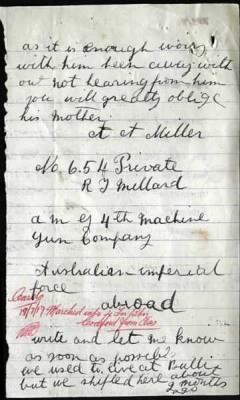 as it is enough worry
with him been away with
out not hearing from him
you will greatly oblige
his mother
A A Miller
No. 654 Private
R J Millard
a m G 4th machine
Gun Company
Australian imperial
force
abroad
18/7/17 Marched
write and let me know
as soon as possible
we used to live at Bulli
but we shifted here about
2 months
ago